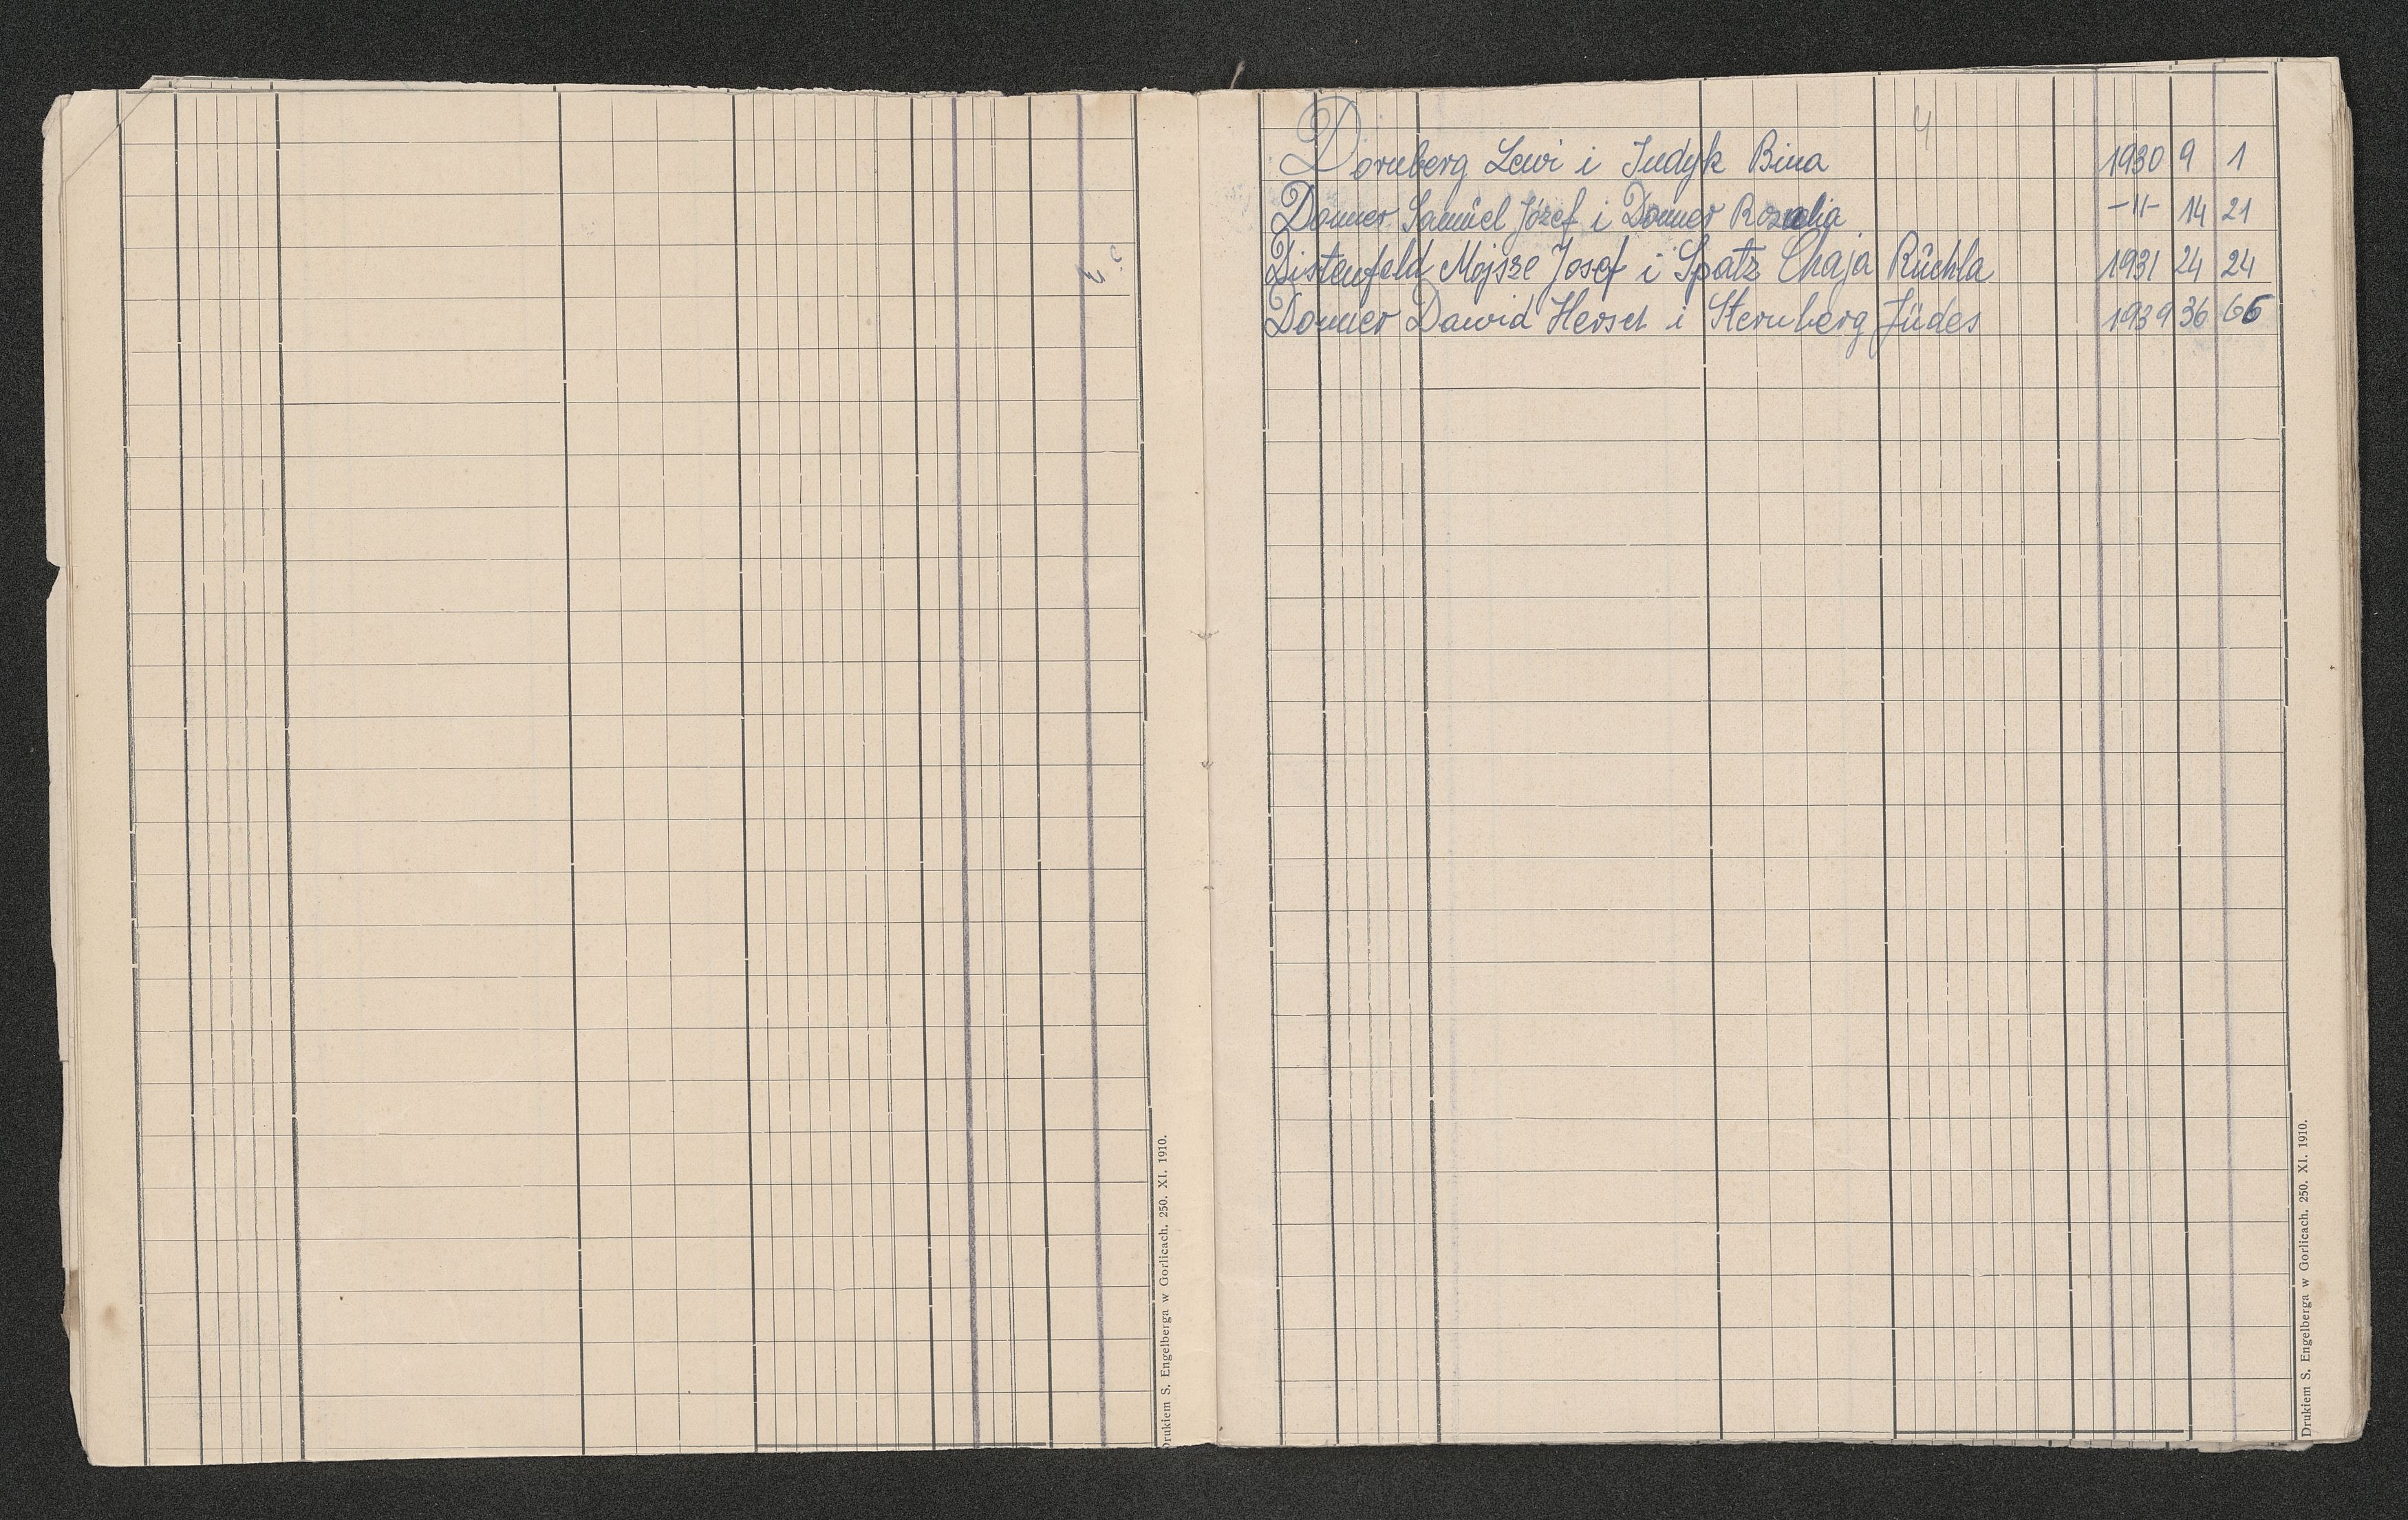 Drukiem S. Engelberga w Gorlicach. 250. XI. 1910.
4
Dornberg Lewi i Indyk Bina 1930 9 1
Donner Samuel Józef i Donner Rozalia -11- 14 21
Distenfeld Mojsze Josef i Spatz Chaja Rŭchla 1931 24 24
Donner Dawid Hersch i Sternberg Jüdes 1939 36 66
Drukiem S. Engelberga w Gorlicach. 250. XI. 1910.